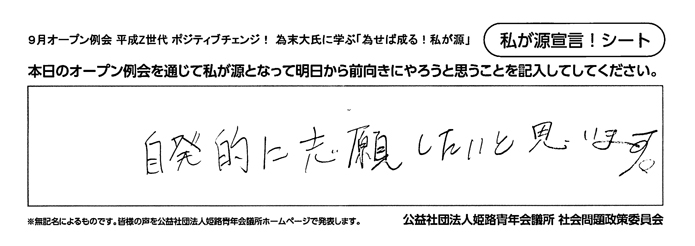 9月オープン例会 平成Z世代 ポジティブチェンジ！ 為末大氏に学ぶ「為せば成る！私が源」
私が源宣言！シート
本日のオープン例会を通じて私が源となって明日から前向きにやろうと思うことを記入してしてください。
自発的に志願したいと思います。
※無記名によるものです。皆様の声を公益社団法人姫路青年会議所ホームページで発表します。
公益社団法人姫路青年会議所 社会問題政策委員会